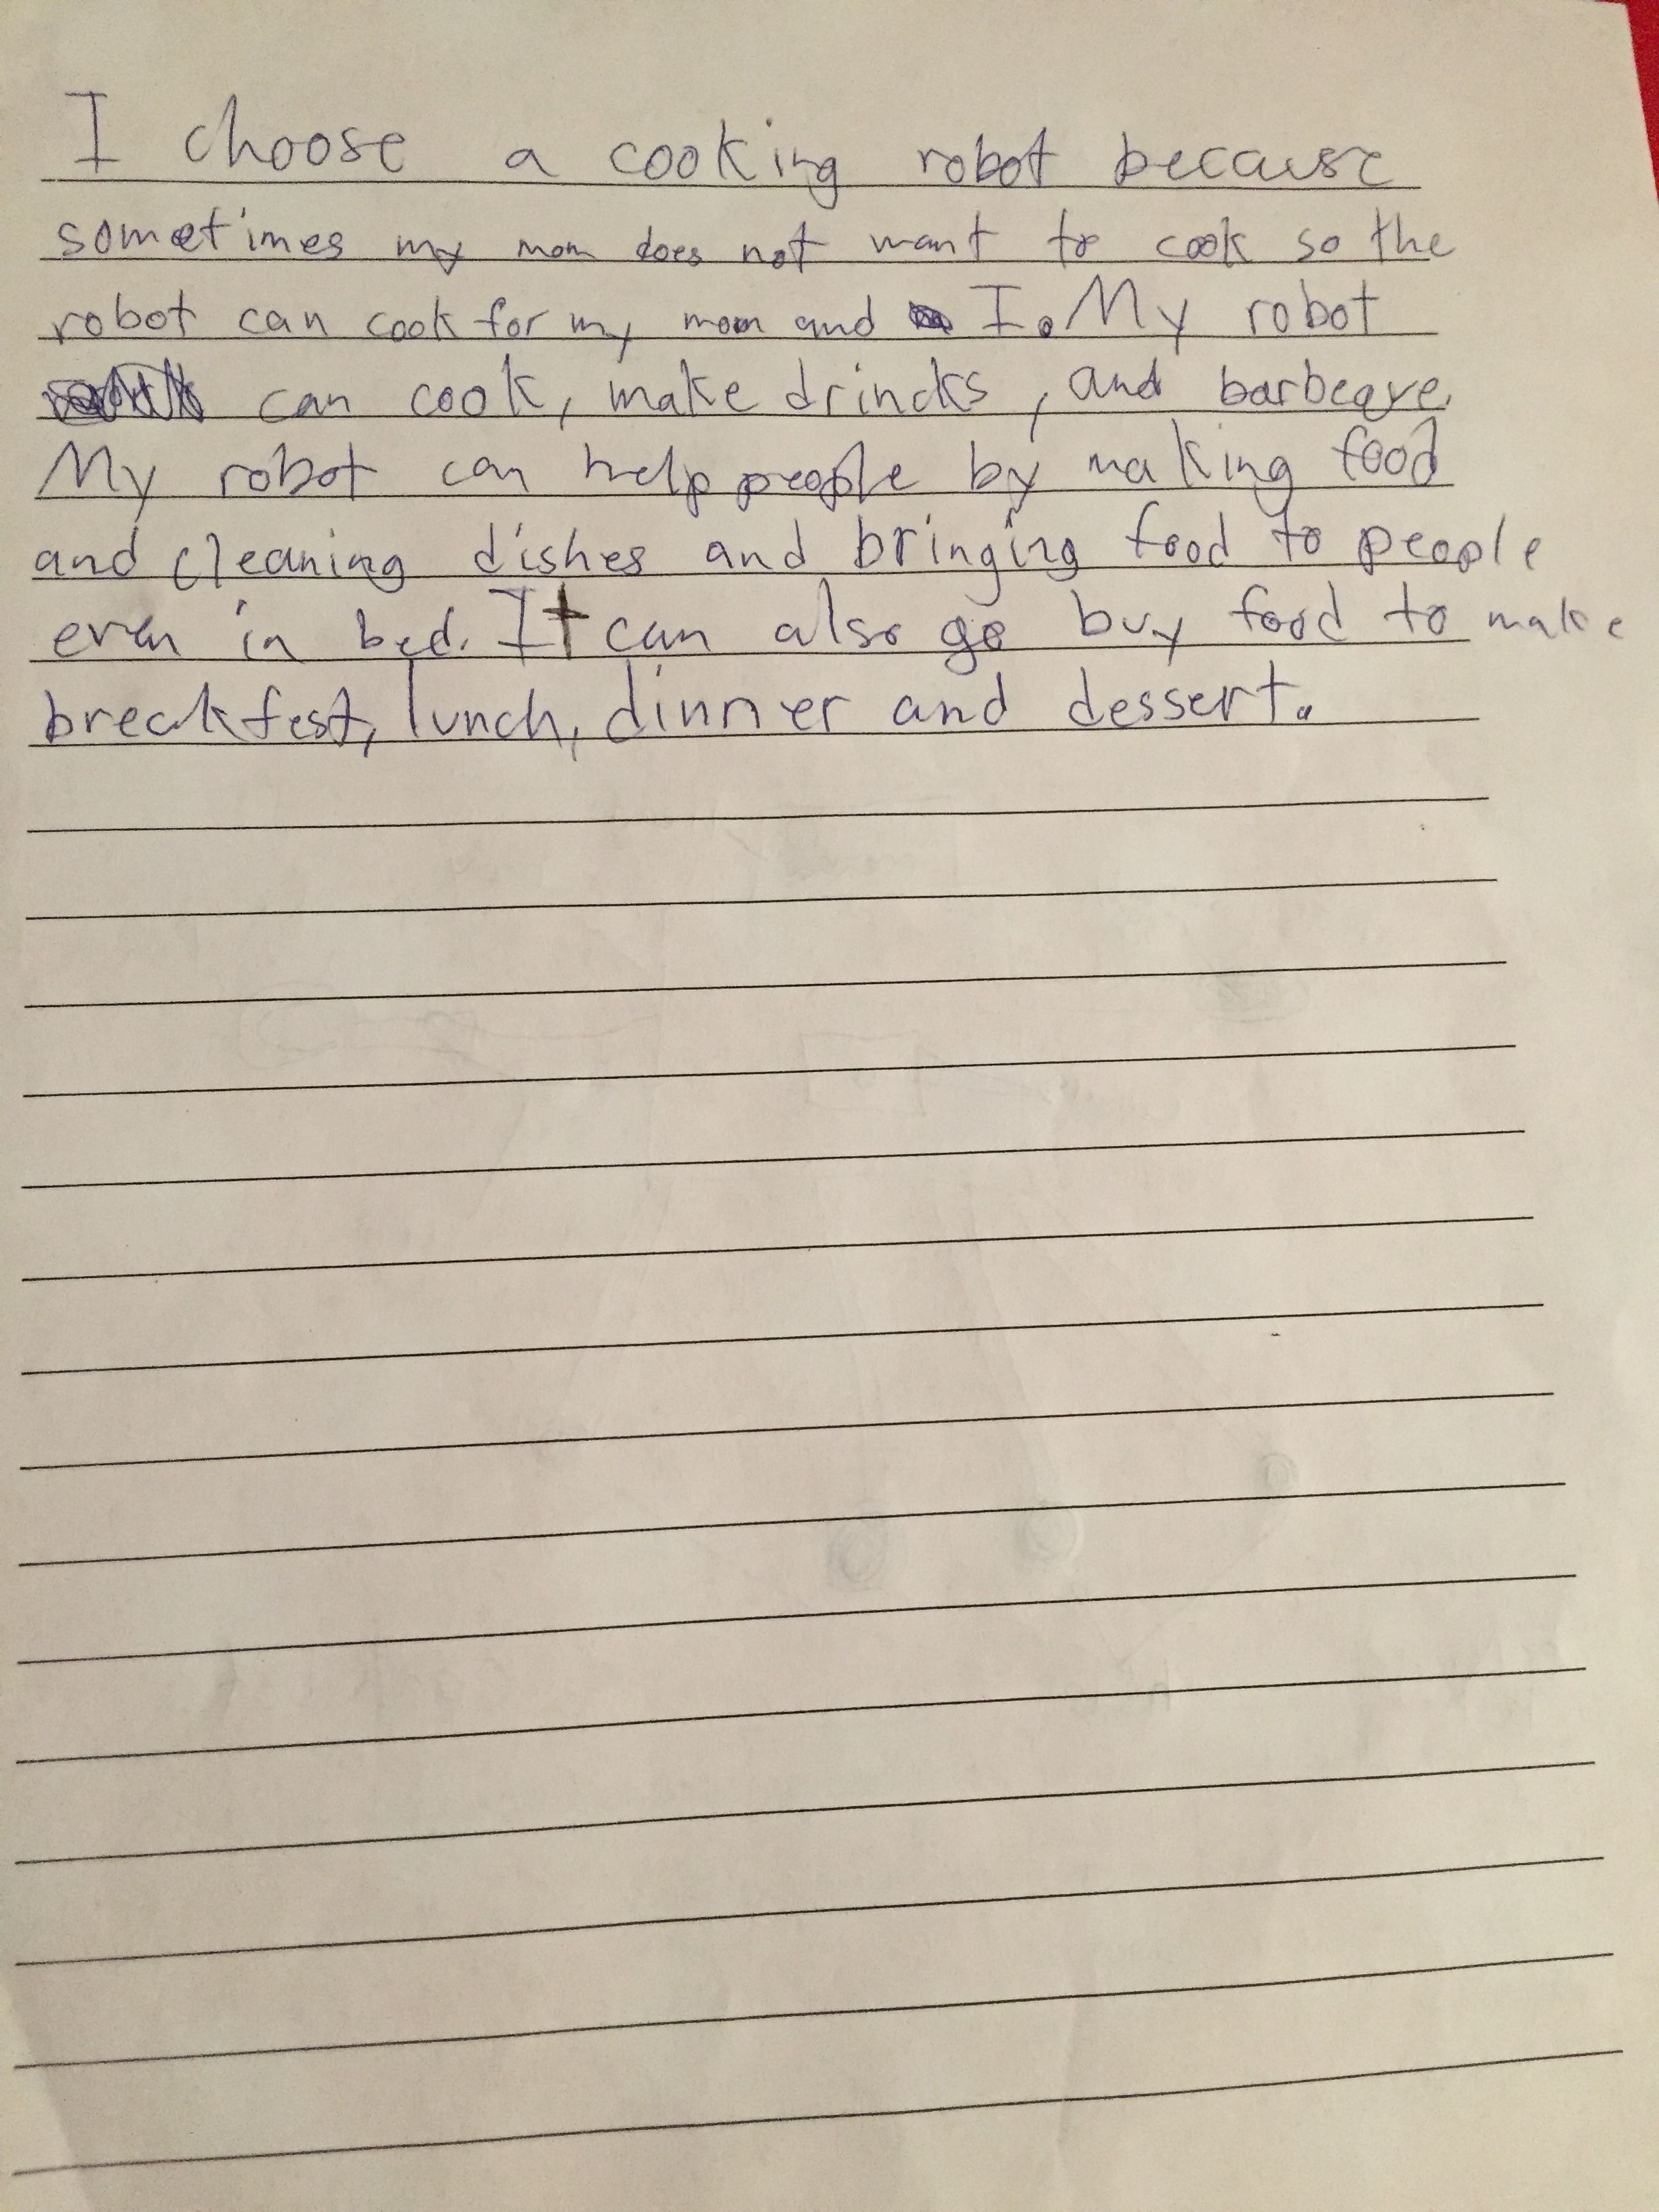 I choose a cooking robot because
sometimes my mom does not want to cook so the
robot can cook for my mom and I. My robot
can cook, make drincks, and barbeqye.
My robot can help people by making food
and cleaning dishes and bringing food to people
even in bed. It can also go buy food to make
breakfest, lunch, dinner and dessert.